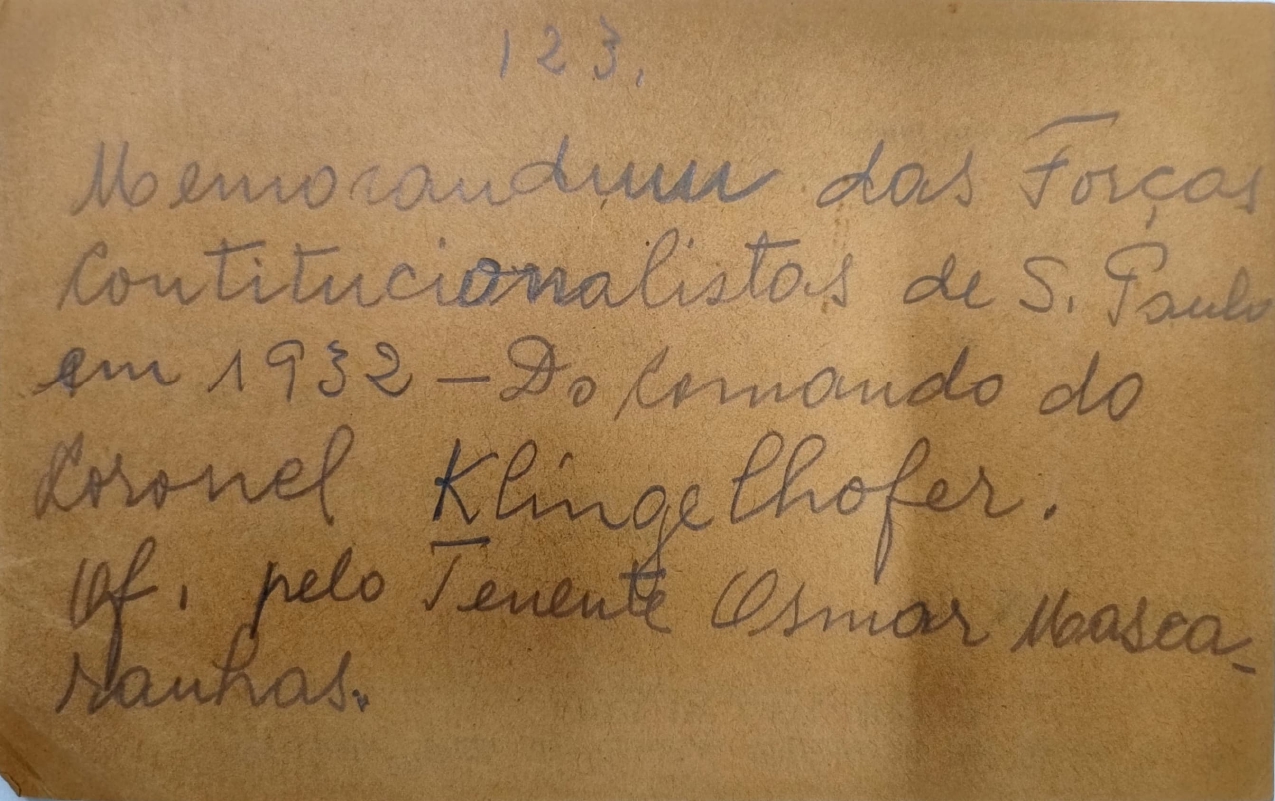 123.
Memorandum das Forças
Contitucionalistas de S. Paulo
em 1932 – Do Comando do
Coronel Klingelhofer.
Of. pelo Tenente Osmar Masca-
ranhas.